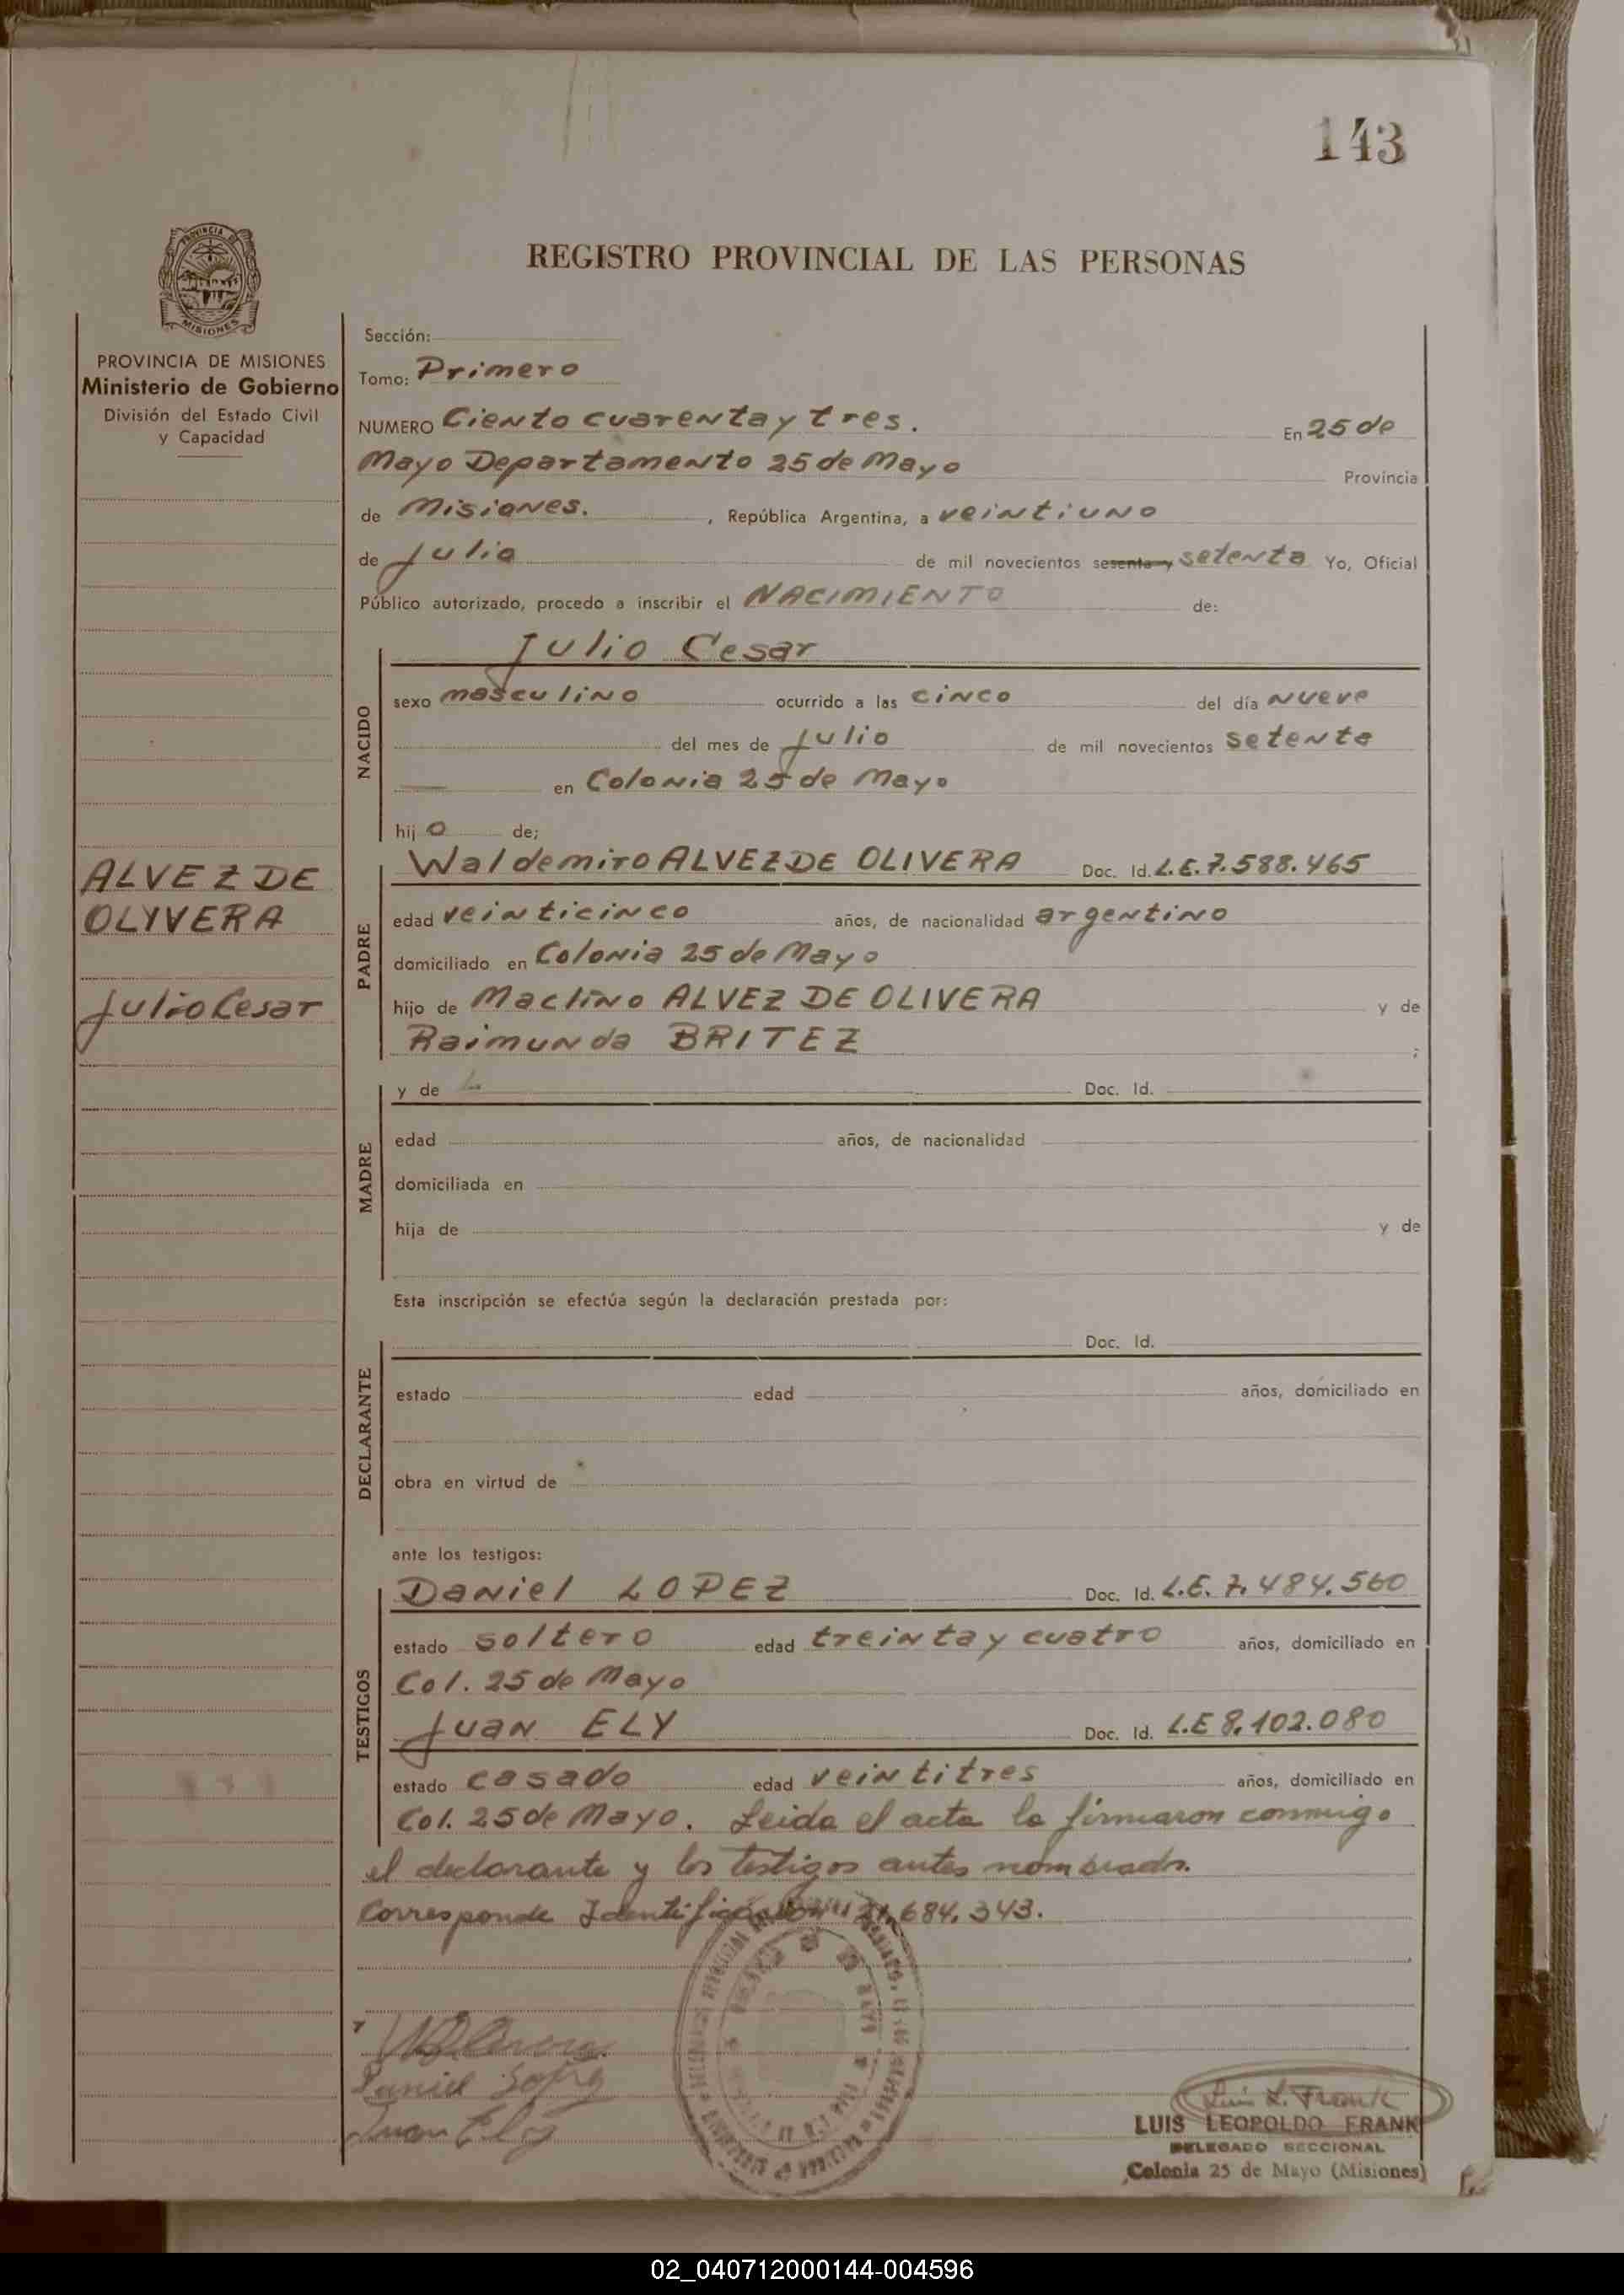 143
PROVINCIA DE
MISIONES
REGISTRO PROVINCIAL DE LAS PERSONAS
PROVINCIA DE MISIONES
Ministerio de Gobierno
División del Estado Civil
y Capacidad
ALVEZ DE
OLYVERA
Julio Cesar
Sección:
Tomo: Primero
NUMERO Ciento cuarenta y tres. En 25 de
Mayo Departamento 25 de Mayo Provincia
de Misiones. , República Argentina, a veintiuno
de Julio de mil novecientos sesenta y setenta Yo, Oficial
Público autorizado, procedo a inscribir el NACIMIENTO de:
NACIDO
Julio Cesar
sexo masculino ocurrido a las cinco del día nueve
del mes de Julio de mil novecientos setenta
en Colonia 25 de Mayo
hijo de;
PADRE
Waldemiro ALVEZ DE OLIVERA Doc. Id. L.E. 7.588.465
edad veinticinco años, de nacionalidad argentino
domiciliado en Colonia 25 de Mayo
hijo de Maclino ALVEZ DE OLIVERA y de
Raimunda BRITEZ ;
MADRE
y de Doc. Id.
edad años, de nacionalidad
domiciliada en
hija de y de
Esta inscripción se efectúa según la declaración prestada por:
DECLARANTE
Doc. Id.
estado edad años, domiciliado en
obra en virtud de
ante los testigos:
TESTIGOS
Daniel LOPEZ Doc. Id. L.E. 7.484.560
estado soltero edad treinta y cuatro años, domiciliado en
Col. 25 de Mayo
Juan ELY Doc. Id. L.E 8.102.080
estado casado edad veintitres años, domiciliado en
Col. 25 de Mayo. Leida el acta la firmaron conmigo
el declarante y los testigos antes nombrados.
Corresponde Identificación 21.684.343.
Juan Ely
Luis L. Frank
LUIS LEOPOLDO FRANK
DELEGADO SECCIONAL
Colonia 25 de Mayo (Misiones)
02_040712000144-004596